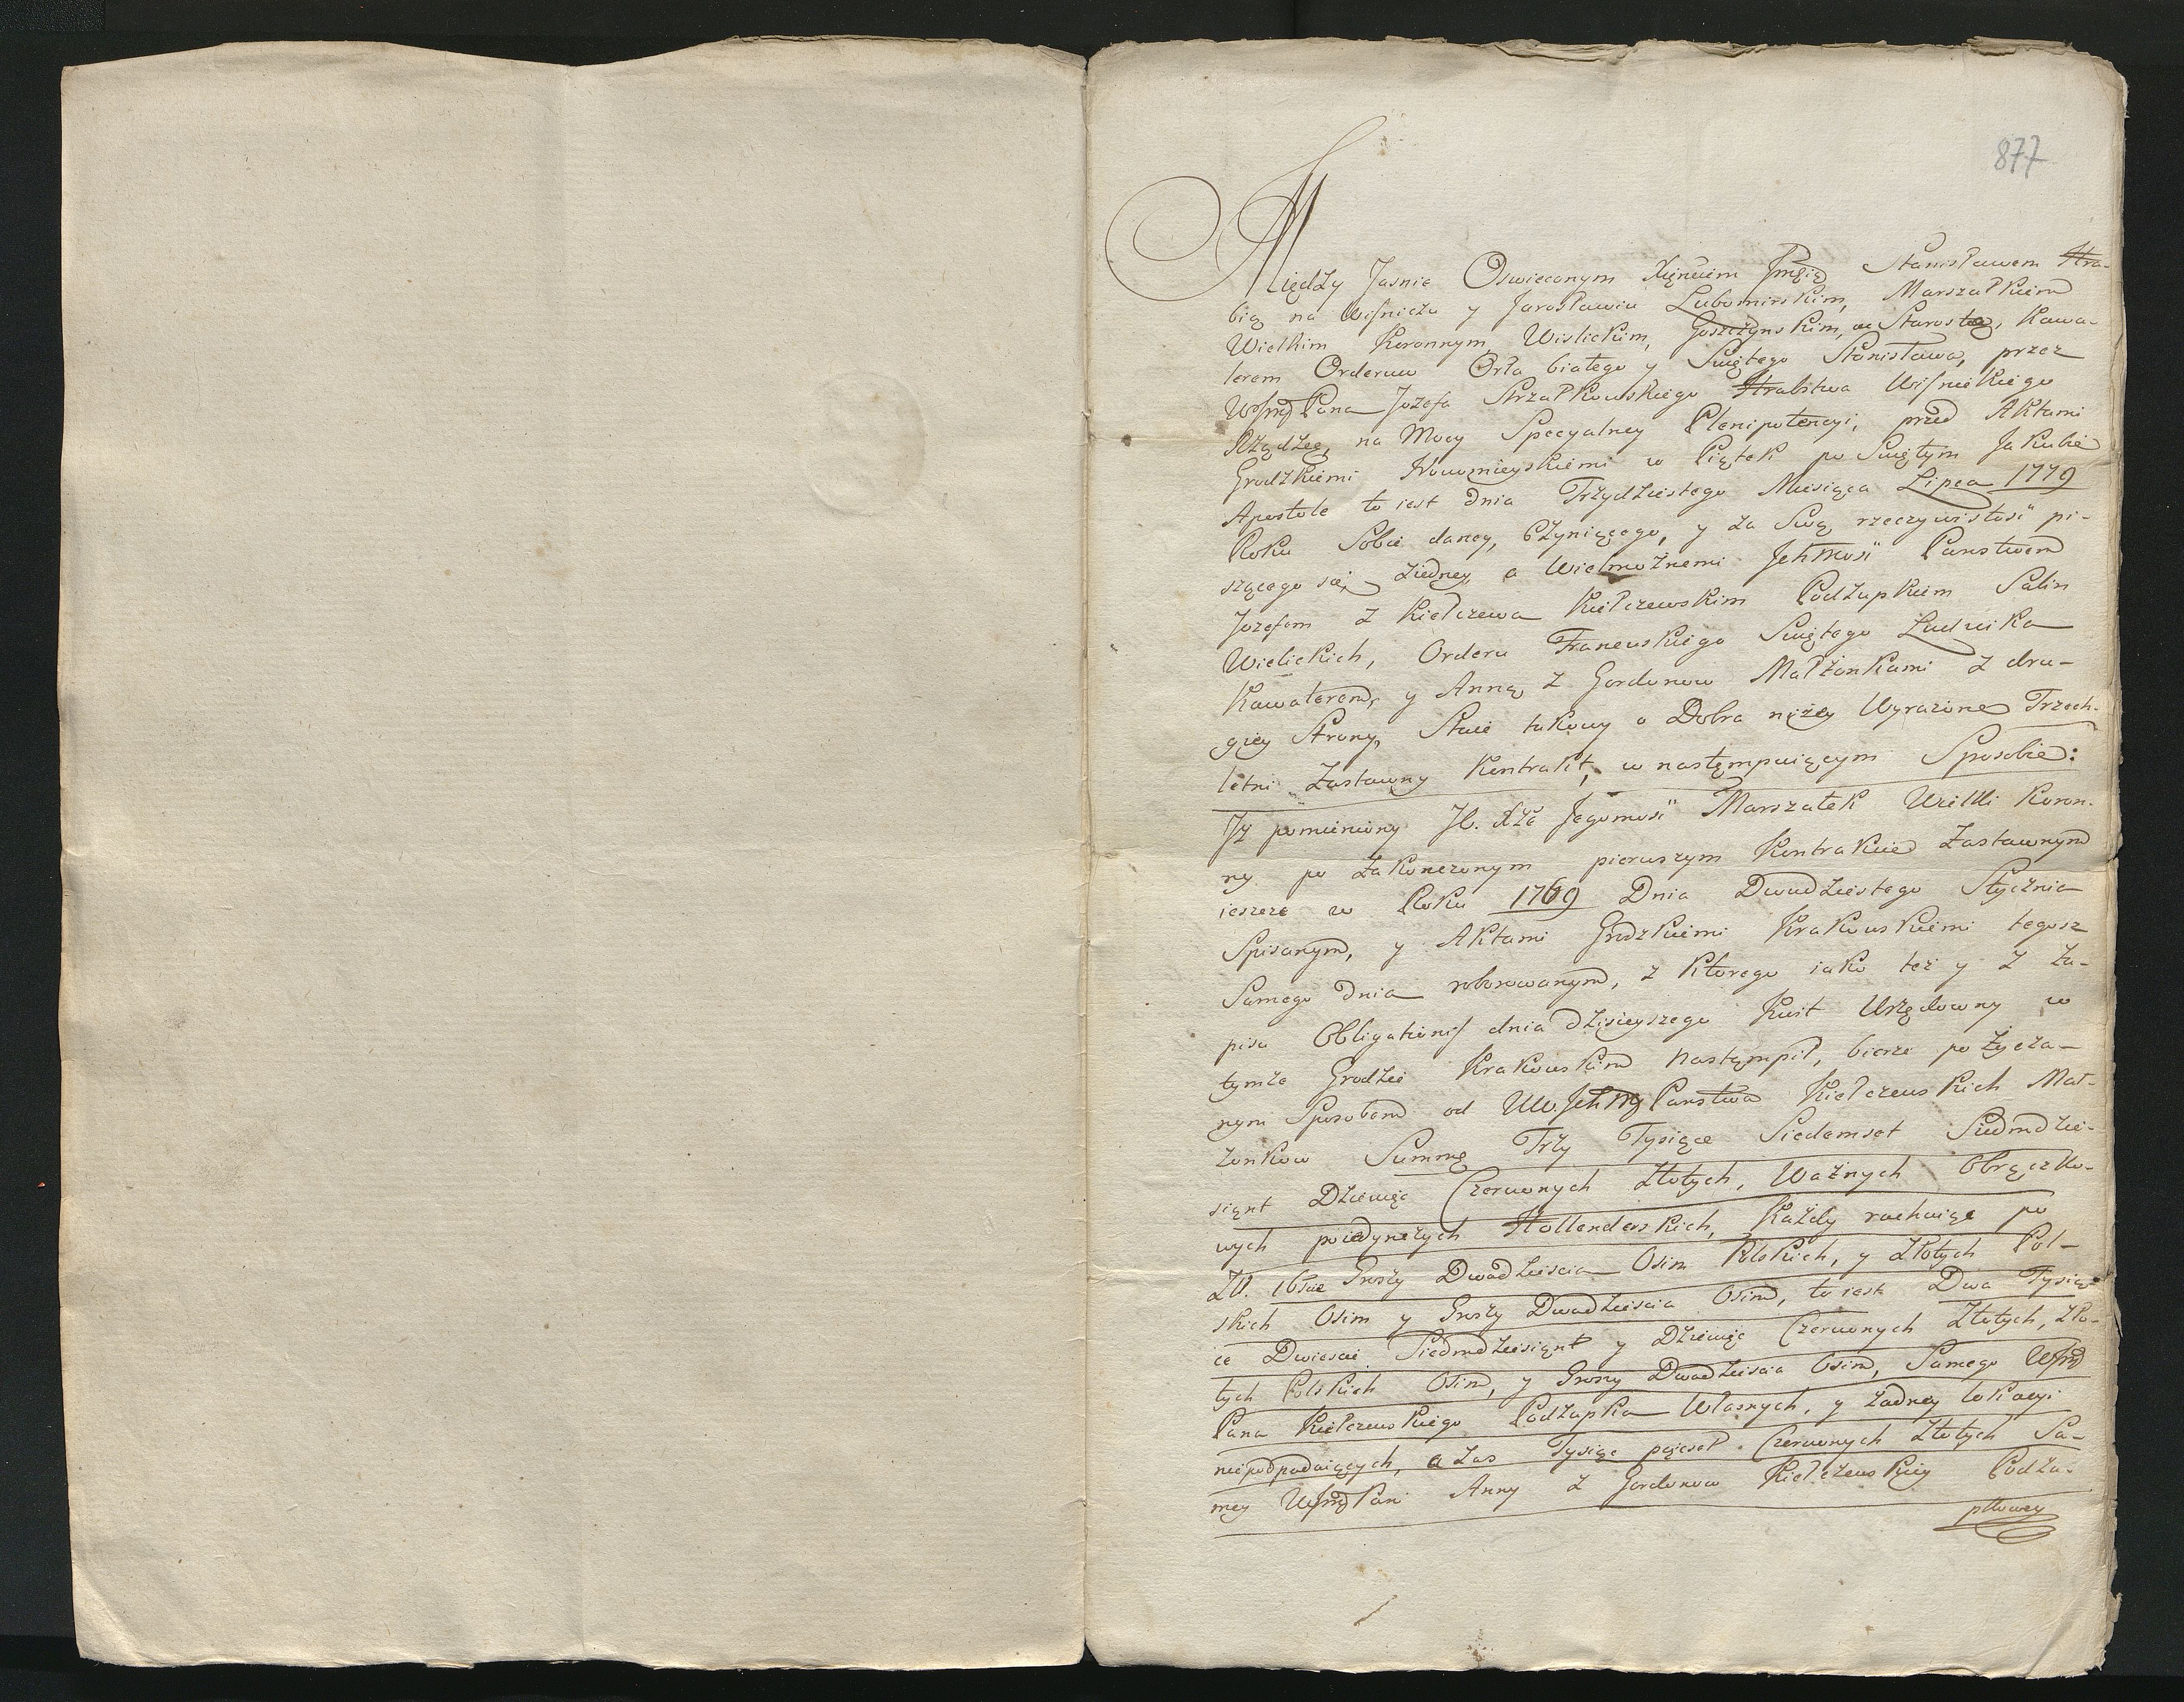 877
Między Jasnie Oswieconym Xięciem Jmcią Stanisławem Hra-
bią na Wiśniczu y Jarosławiu Lubomirskim, Marszałkiem
Wielkim Koronnym, Wislickim, Goszczynskim, &c Starostą, Kawa-
lerem Orderow Orła białego y Swiętego Stanisława, przez
WJmć Pana Jozefa Strzałkowskiego Hrabstwa Wisnickiego
Rządzcę, na Mocy Specyalney Plenipotencyi, przed Aktami
Grodzkiemi Nowomieyskiemi w Piątek po Swiętym Jakubie
Apostole to iest Dnia Trzydziestego Miesiąca Lipca 1779
Roku Sobie daney, Czyniącego, y za Swą rzeczywistość pi-
szącego się, z iedney, a Wielmożnemi Jchmość Panstwem
Jozefem z Kiełczewa Kiełczewskim Podżupkiem Salin
Wielickich, Orderu Francuskiego Swiętego Ludwika
Kawalerem, y Anną z Gordonow Małżonkami z dru-
giey Strony, Staie takowy o Dobra niżey Wyrażone Trzech-
letni Zastawny Kontrakt, w następuiącym Sposobie:
Jż pomieniony JO. Xże Jegomość Marszałek Wielki Koron-
ny po zakonczonym pierwszym Kontrakcie Zastawnym
ieszcze w Roku 1769 Dnia Dwudziestego Stycznia
Spisanym, y Aktami Grodzkiemi Krakowskiemi tegosz
Samego Dnia roborowanym, z Ktorego iako też y z Za-
pisu Obligationis dnia dzisieyszego Kwit Urzędowny w
tymże Grodzie Krakowskim nastąmpił, bierze pożycza-
nym Sposobem od WW. Jchmć Panstwa Kiełczewskich Mał-
żonkow Summę Trzy Tysiące Siedemset Siedmdzie-
siąnt Dziewięć Czerwonych Złotych, Ważnych Obrączko-
wych poiedynczych Hollenderskich, Każdy rachuiąc po
Zł. 16scie Groszy Dwadzieścia Osim Polskich, y Złotych Pol-
skich Osim y Groszy Dwadzieścia Osim, to iest Dwa Tysią-
ce Dwiescie Siedmdziesiąnt y Dziewięć Czerwonych Złotych, Zło-
tych Polskich Osim, y Groszy Dwadzieścia Osim, Samego WJmć
Pana Kiełczewskiego Podżupka Własnych, y żadney lokacyi
niepodpadaiących, a zas Tysiąc pięcset Czerwonych Złotych Sa-
mey WJmć Pani Anny z Gordonow Kiełczewskiey Podżu-
pkowey